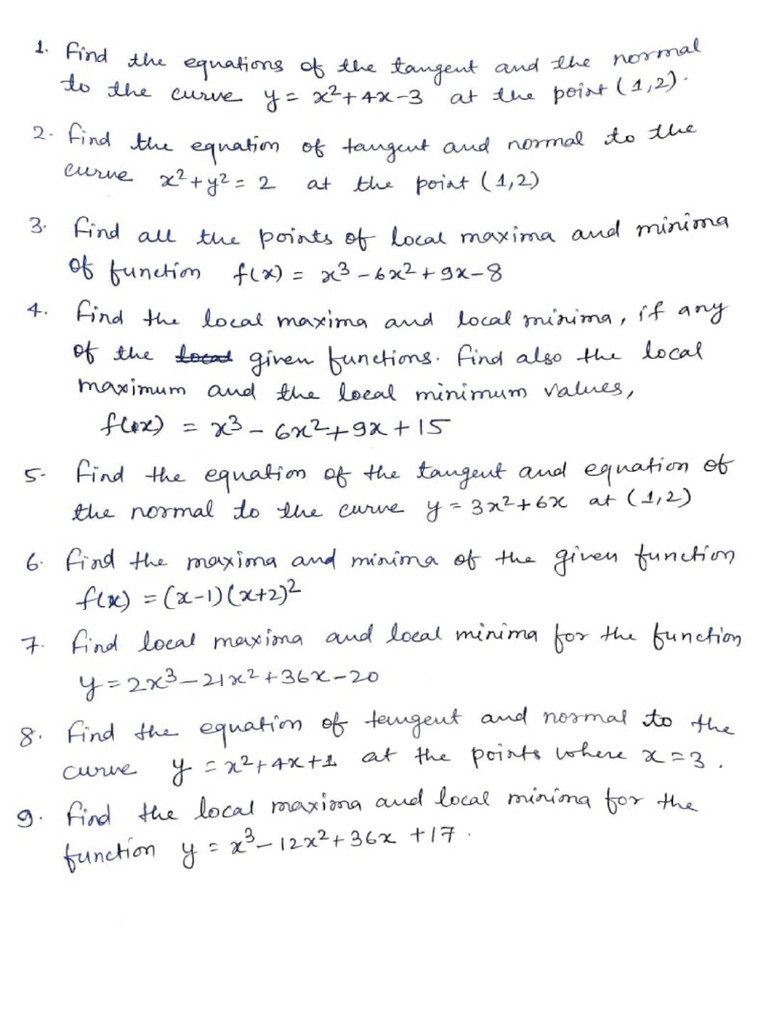 1. Find the equations of the tangent and the normal
to the curve y = x²+4x-3 at the point (1,2).
2. Find the equation of tangent and normal to the
curve x²+y²=2 at the point (1,2)
3. Find all the points of local maxima and minima
of function f(x) = x³-6x²+9x-8
4. Find the local maxima and local minima, if any
of the local given functions. Find also the local
maximum and the local minimum values,
f(x) = x³-6x²+9x+15
5- Find the equation of the tangent and equation of
the normal to the curve y=3x²+6x at (1,2)
6. Find the maxima and minima of the given function
f(x) = (x-1)(x+2)²
7. Find local maxima and local minima for the function
y=2x³-21x²+36x-20
8. Find the equation of tengent and normal to the
curve y = x²+4x+1 at the points where x=3.
9. Find the local maxima and local minima for the
function y = x³-12x²+36x+17.